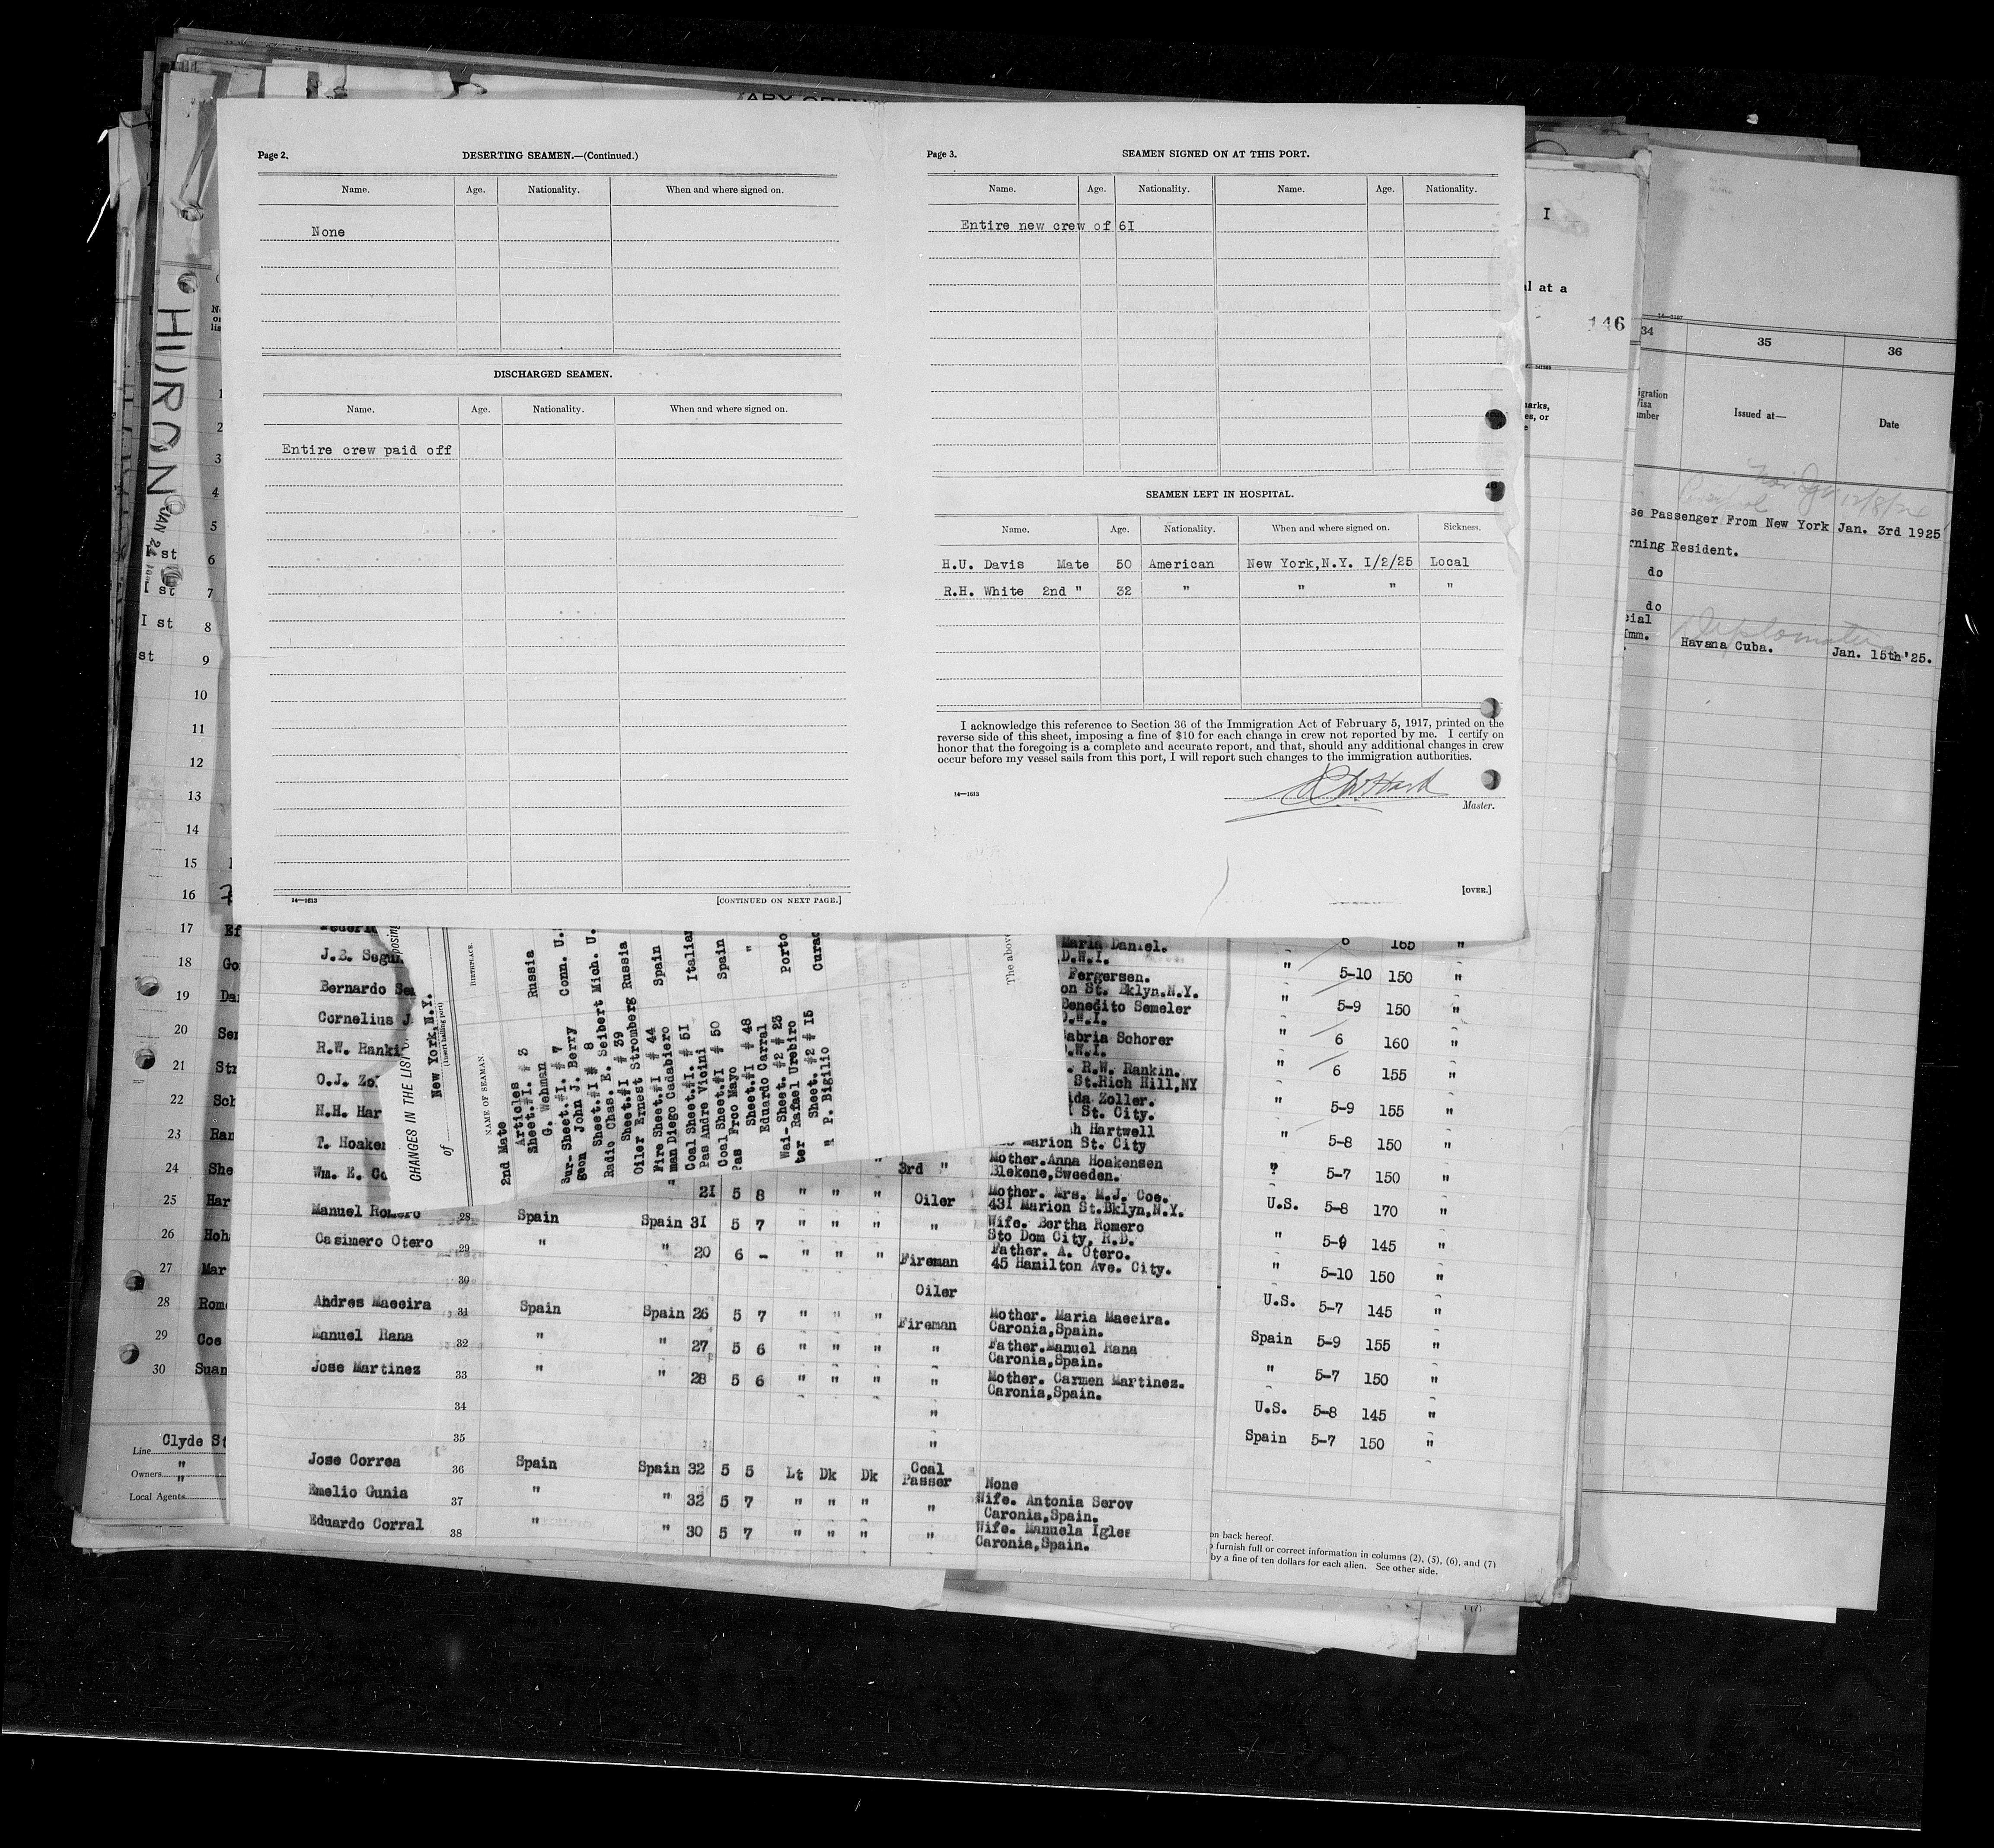 Page 2.
DESERTING SEAMEN.—(Continued.)
Name. Age. Nationality. When and where signed on.
None
DISCHARGED SEAMEN.
Name. Age. Nationality. When and where signed on.
Entire crew paid off
14—1613
[CONTINUED ON NEXT PAGE.]
Page 3.
SEAMEN SIGNED ON AT THIS PORT.
Name. Age. Nationality. Name. Age. Nationality.
Entire new crew of 6I
SEAMEN LEFT IN HOSPITAL.
Name. Age. Nationality. When and where signed on. Sickness.
H.U. Davis Mate 50 American New York,N.Y. I/2/25 Local
R.H. White 2nd " 32 " " " "
I acknowledge this reference to Section 36 of the Immigration Act of February 5, 1917, printed on the
reverse side of this sheet, imposing a fine of $10 for each change in crew not reported by me. I certify on
honor that the foregoing is a complete and accurate report, and that, should any additional changes in crew
occur before my vessel sails from this port, I will report such changes to the immigration authorities.
14—1613
Master.
[OVER.]
HURON
I
al at a
146
34 35 36
Issued at—
Date
se Passenger From New York Jan. 3rd 1925
rning Resident.
do
do
cial
Imm.
Havana Cuba. Jan. 15th '25.
I st 6
I st 7
I st 8
st 9
10
11
12
13
14
15
16
17 Ef
18 Go
19 Da
20 Ser
21 Str
22 Sch
23 Ran
24 She
25 Har
26 Hoh
27 Mar
28 Rome
29 Coe
30 Suan
Line Clyde St
Owners "
Local Agents "
J.B. Segu
Bernardo Se
Cornelius J
R.W. Ranki
O.J. Zol
N.H. Har
T. Hoake
Wm. E. Co
CHANGES IN THE LIST
of New York,N.Y.
(Insert hailing port)
NAME OF SEAMAN. BIRTHPLACE.
2nd Mate
Articles
Sheet.#I. # 3 Russia
G. Wehman
Sur- Sheet.#I. # 7 Conn. U.
geon John J. Berry
Sheet.#I # 8
Radio Chas. E. Seibert Mich. U.
Sheet.#I # 39
Oiler Ernest Stromberg Russia
Fire Sheet.#I # 44 Spain
man Diego Cadabiero
Coal Sheet.#I. # 5I Italian
Pas Andre Vicini
Coal Sheet.#I # 50 Spain
Pas Frco Mayo
Sheet.#I # 48 "
Eduardo Carral
Wai- Sheet. #2 # 23 Porto
ter Rafael Urebiro
Sheet. #2 # I5 Curac
" P. Bigilio
The above
Maria Daniel. 6 165 "
D.W.I.
Fergersen. " 5-10 150 "
on St. Bklyn.N.Y.
Benedito Semeler " 5-9 150 "
D.W.I.
Sabria Schorer " 6 160 "
.W.I.
. R.W. Rankin. " 6 155 "
St.Rich Hill,NY
ida Zoller. " 5-9 155 "
St. City.
h Hartwell " 5-8 150 "
Marion St. City
3rd " Mother.Anna Hoakensen ? 5-7 150 "
Blekene,Sweeden.
2I 5 8 " " " Oiler Mother. Mrs. M.J. Coe. U.S. 5-8 170 "
43I Marion St.Bklyn,N.Y.
Manuel Romero 28 Spain Spain 3I 5 7 " " " " Wife. Bertha Romero " 5-9 145 "
Sto Dom City, R.D.
Casimero Otero 29 " " 20 6 – " " " Fireman Father. A. Otero. " 5-10 150 "
45 Hamilton Ave. City.
30 Oiler U.S. 5-7 145 "
Andres Maceira 31 Spain Spain 26 5 7 " " " Fireman Mother. Maria Maceira. Spain 5-9 155 "
Caronia,Spain.
Manuel Rana 32 " " 27 5 6 " " " " Father.Manuel Rana " 5-7 150 "
Caronia,Spain.
Jose Martinez 33 " " 28 5 6 " " " " Mother. Carmen Martinez. U.S. 5-8 145 "
Caronia,Spain.
34 " Spain 5-7 150 "
35 "
Jose Correa 36 Spain Spain 32 5 5 Lt Dk Dk Coal Passer None
Emelio Gunia 37 " " 32 5 7 " " " " Wife. Antonia Serov
Caronia,Spain.
Eduardo Corral 38 " " 30 5 7 " " " " Wife. Manuela Igles
Caronia,Spain.
on back hereof.
furnish full or correct information in columns (2), (5), (6), and (7)
by a fine of ten dollars for each alien. See other side.